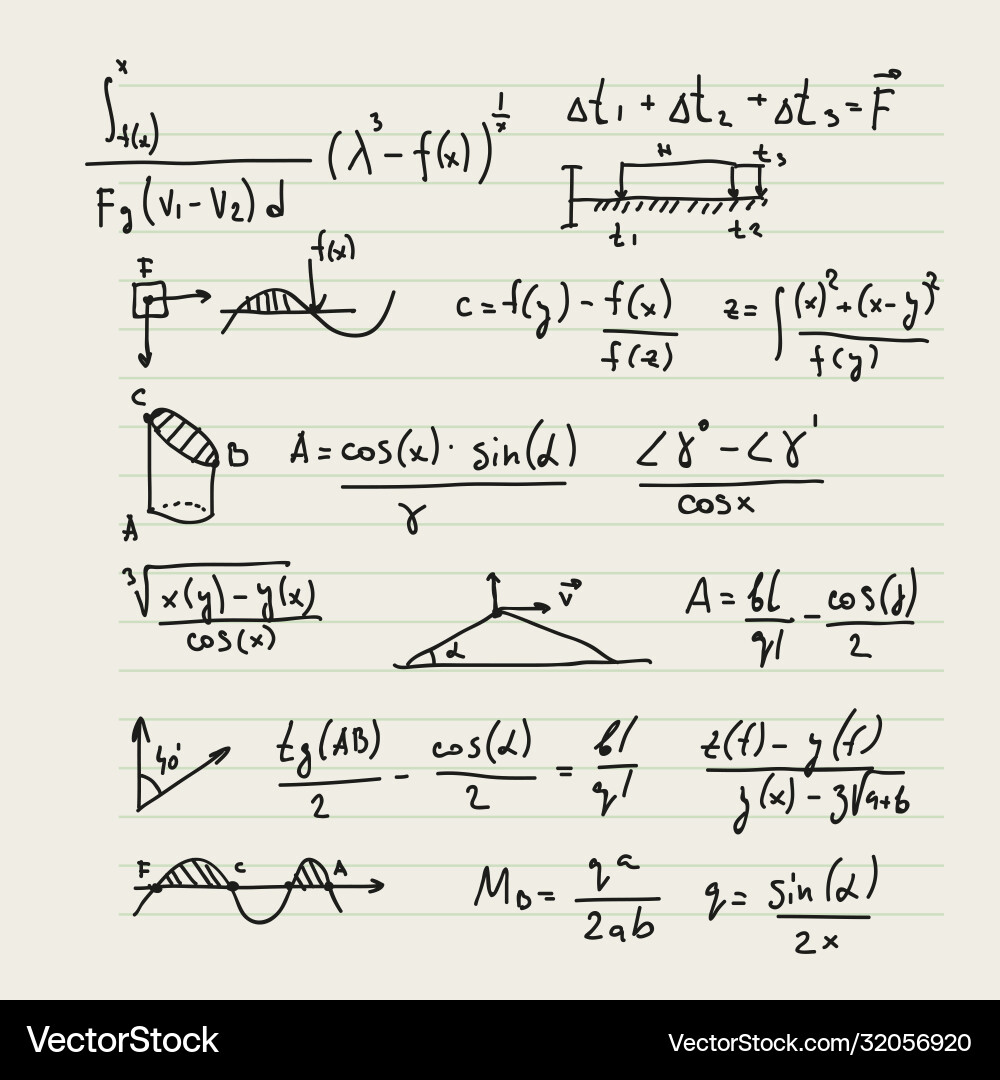 ∫ˣ f(x) / F g (V₁ - V₂) d (λ³ - f(x))^(1/x) Δt₁ + Δt₂ + Δt₃ = F⃗
t₃
t₁ t₂
F f(x) c = f(y) - f(x) / f(z) z = ∫ (x)² + (x - y)² / f(y)
C B A A = cos(x) · sin(α) / γ ∠γ° - ∠γ' / cos x
³√ x(y) - y(x) / cos(x) α v⃗ A = bl / ql - cos(j) / 2
40' tg(AB) / 2 - cos(α) / 2 = bl / ql z(f) - y(f) / j(x) - 3√a+b
F C A M_B = qᵃ / 2ab q = sin(α) / 2x
VectorStock VectorStock.com/32056920